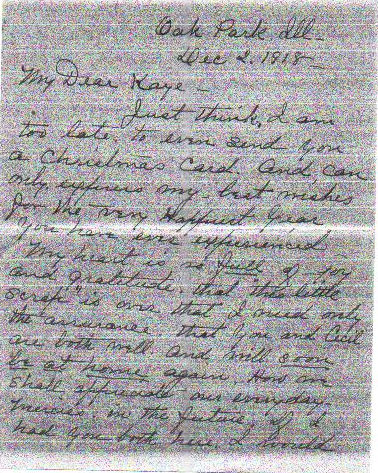 Oak Park Ill-
Dec 2. 1918-
My Dear Kaye -
Just think, I am
too late, to even send you
a Christmas Card, and can
only express my best wishes
for the very Happiest Year
you have ever experienced
My heart is so full of joy
and gratitude, that this little
"scrap" is over that I need only
the assurance, that you and Cecil
are both well. and will soon
be at home again. How we
shall appreciate our everyday
mercies in the future, if I
had you both here I could